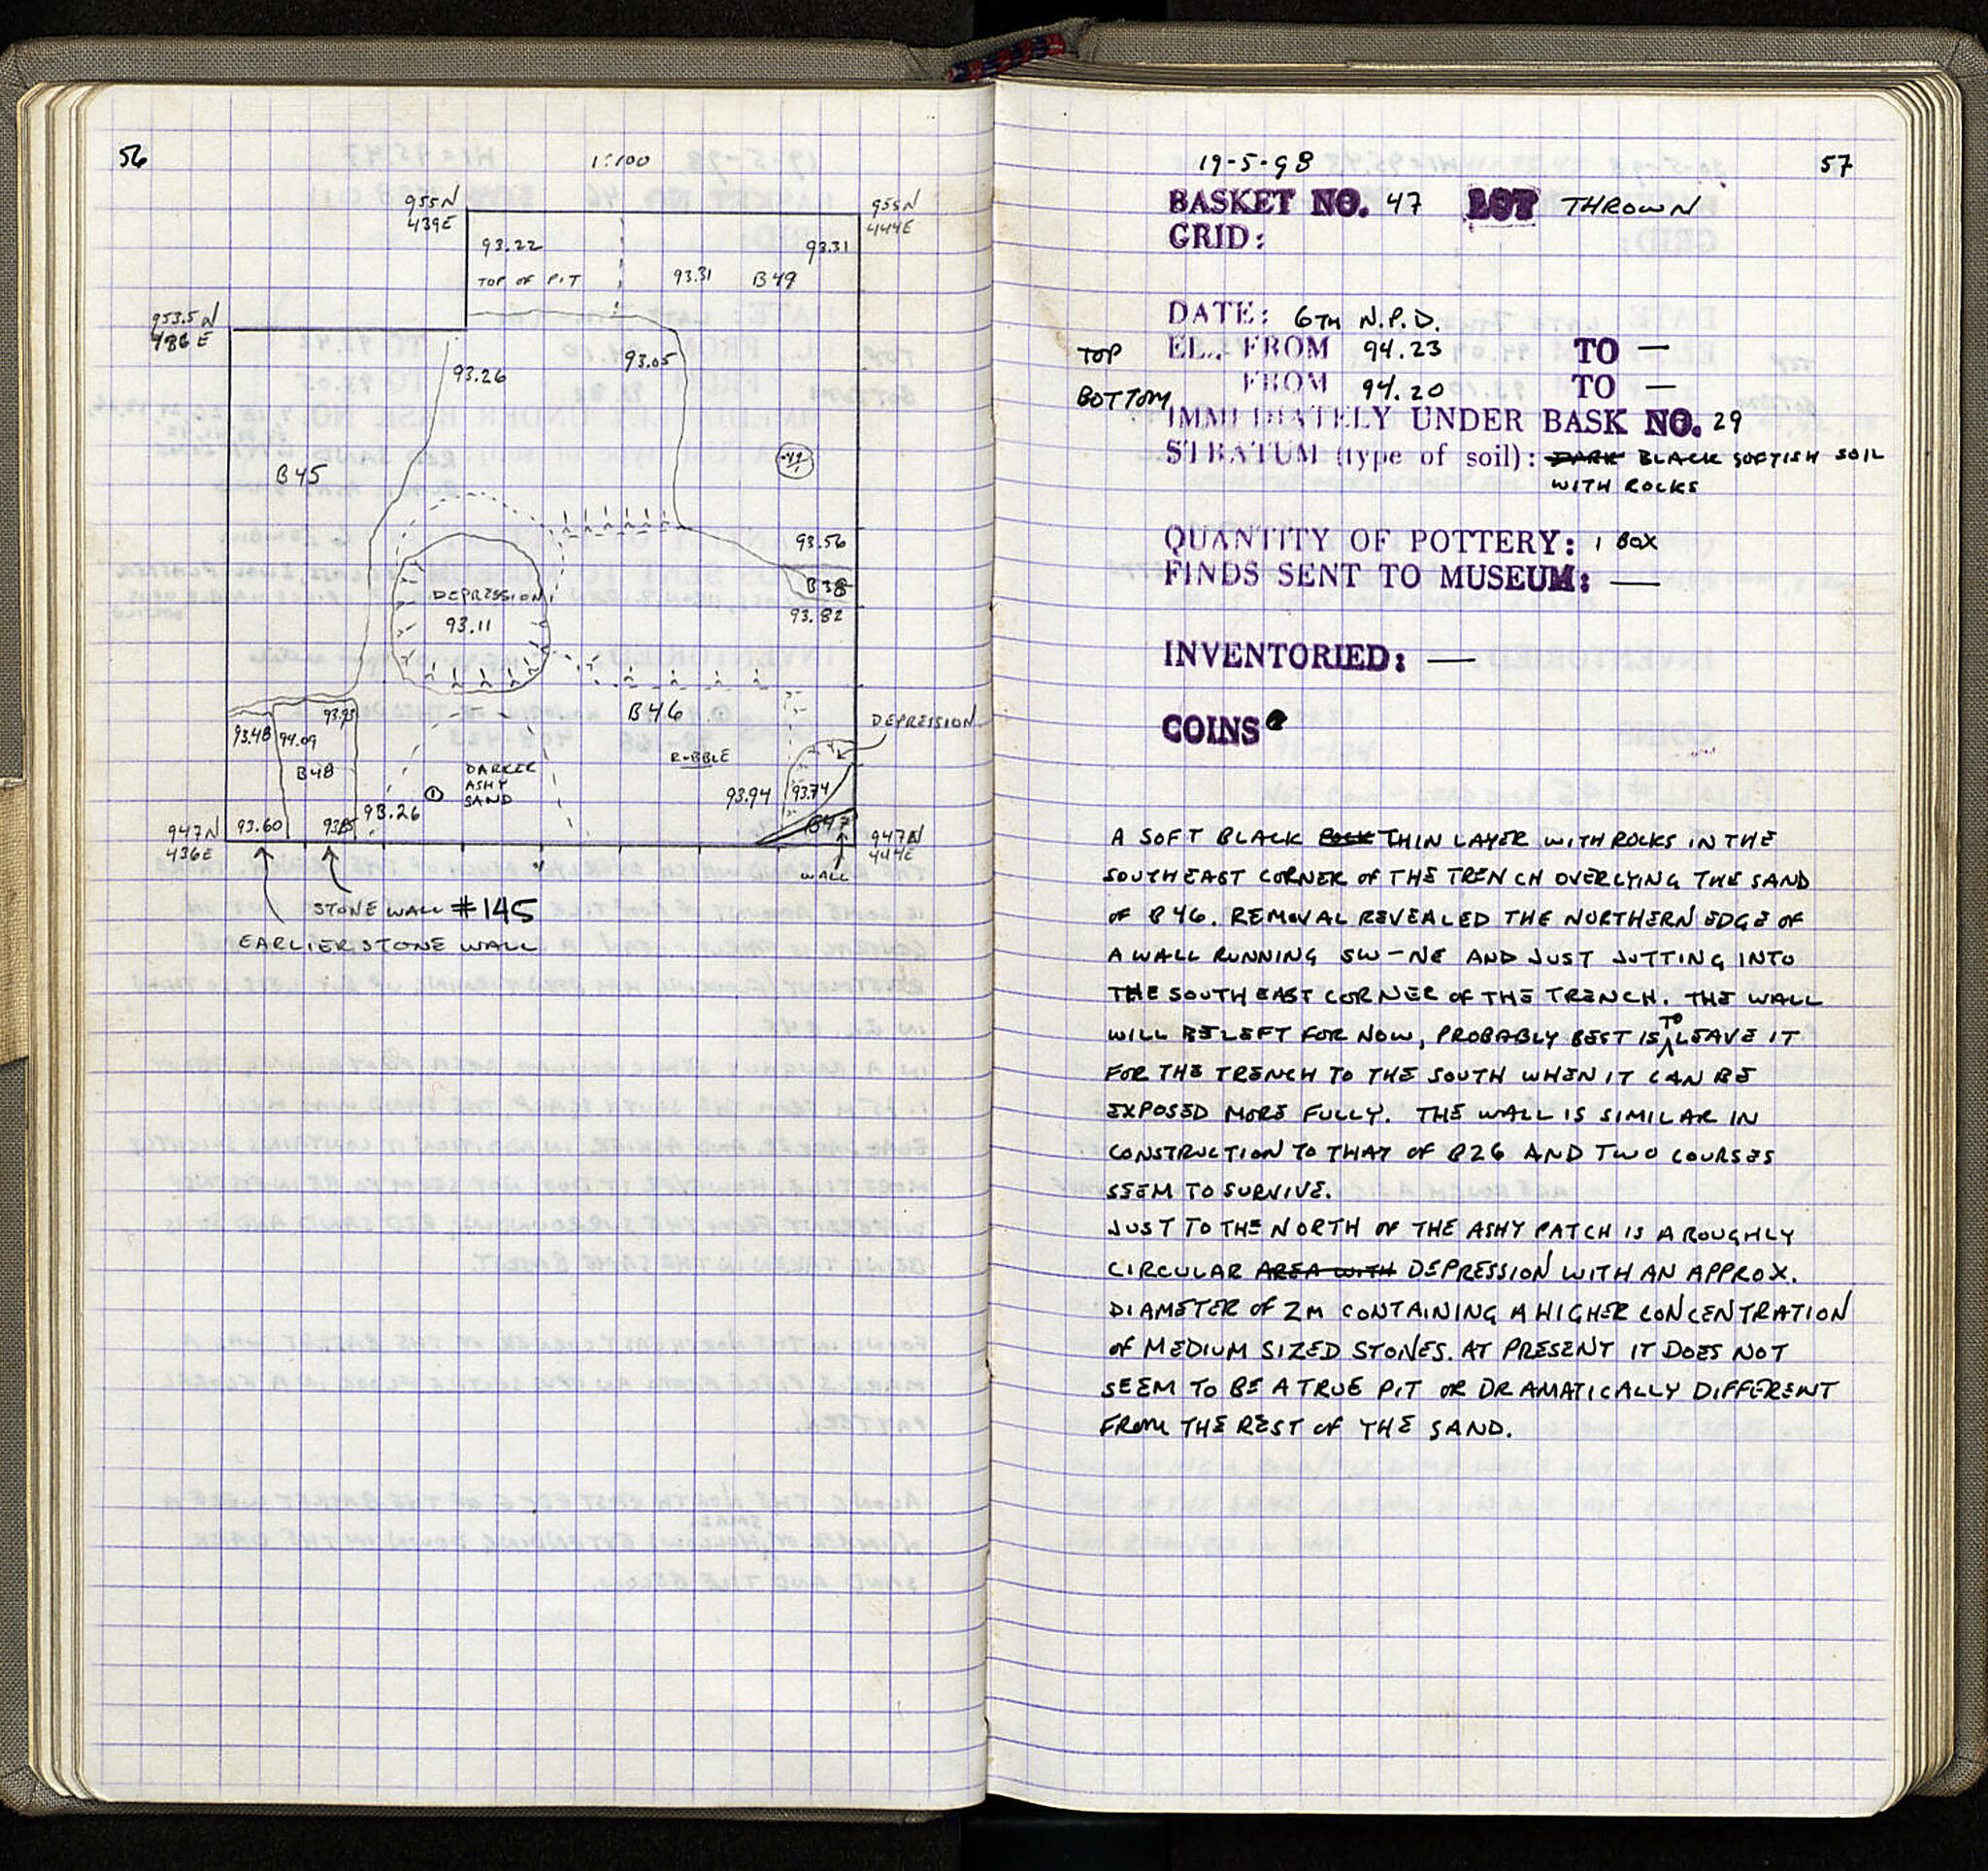 56
1:100
955N
439E
955N
444E
93.22
93.31
TOP OF PIT
93.31
B49
953.5N
436E
93.26
93.05
B45
93.56
B38
93.82
DEPRESSION
93.11
B46
RUBBLE
DEPRESSION
93.93
93.48
94.09
B48
DARKER
ASHY
SAND
1
93.94
93.74
B47
93.60
93.26
947N
436E
947N
444E
WALL
STONE WALL #145
EARLIER STONE WALL
19-5-98
57
BASKET NO. 47 LOT THROWN
GRID:
DATE: 6TH N.P.D.
TOP EL., FROM 94.23 TO —
BOTTOM FROM 94.20 TO —
IMMEDIATELY UNDER BASK NO. 29
STRATUM (type of soil): DARK BLACK SOFTISH SOIL
WITH ROCKS
QUANTITY OF POTTERY: 1 BOX
FINDS SENT TO MUSEUM: —
INVENTORIED: —
COINS
A SOFT BLACK THIN LAYER WITH ROCKS IN THE
SOUTHEAST CORNER OF THE TRENCH OVERLYING THE SAND
OF B46. REMOVAL REVEALED THE NORTHERN EDGE OF
A WALL RUNNING SW-NE AND JUST JUTTING INTO
THE SOUTHEAST CORNER OF THE TRENCH. THE WALL
WILL BE LEFT FOR NOW, PROBABLY BEST IS TO LEAVE IT
FOR THE TRENCH TO THE SOUTH WHEN IT CAN BE
EXPOSED MORE FULLY. THE WALL IS SIMILAR IN
CONSTRUCTION TO THAT OF B26 AND TWO COURSES
SEEM TO SURVIVE.
JUST TO THE NORTH OF THE ASHY PATCH IS A ROUGHLY
CIRCULAR AREA WITH DEPRESSION WITH AN APPROX.
DIAMETER OF 2M CONTAINING A HIGHER CONCENTRATION
OF MEDIUM SIZED STONES. AT PRESENT IT DOES NOT
SEEM TO BE A TRUE PIT OR DRAMATICALLY DIFFERENT
FROM THE REST OF THE SAND.